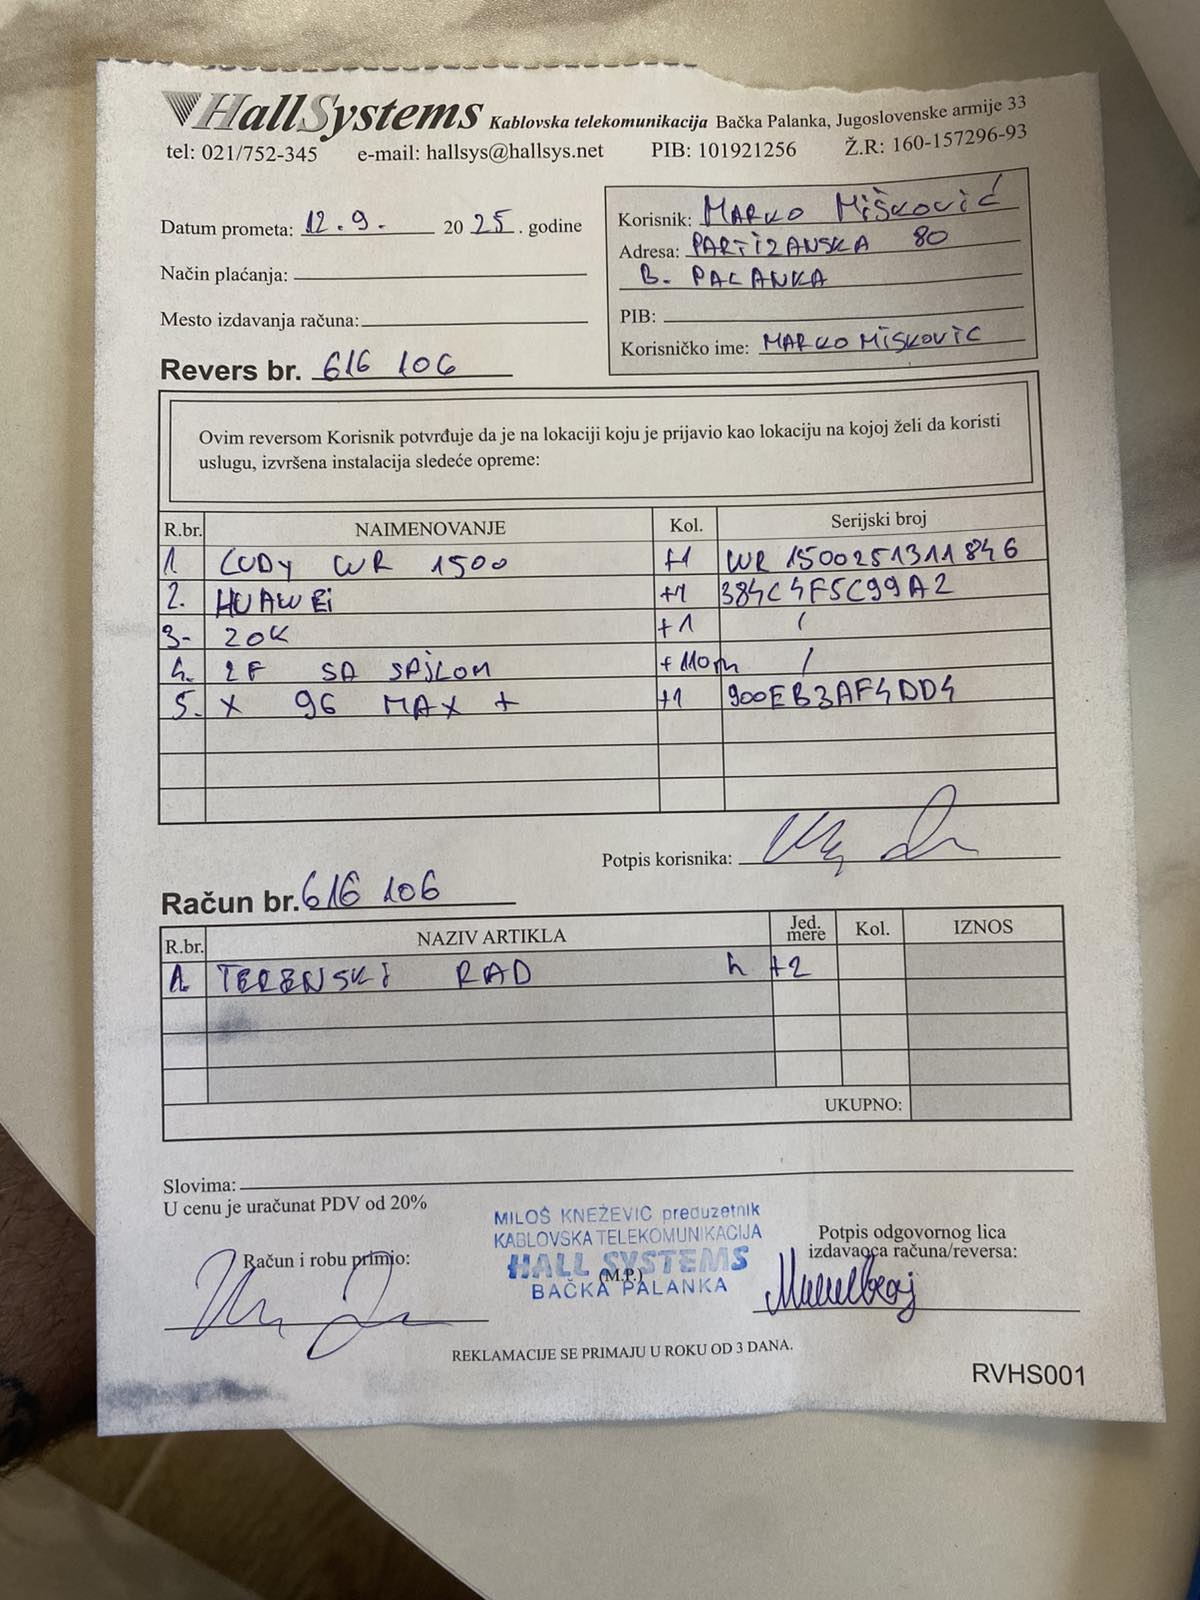 HallSystems Kablovska telekomunikacija Bačka Palanka, Jugoslovenske armije 33
tel: 021/752-345 e-mail: hallsys@hallsys.net PIB: 101921256 Ž.R: 160-157296-93
Datum prometa: 12.9. 2025. godine
Način plaćanja:
Mesto izdavanja računa:
Revers br. 616 106
Korisnik: MARKO MIŠKOVIĆ
Adresa: PARTIZANSKA 80
B. PALANKA
PIB:
Korisničko ime: MARKO MISKOVIC
Ovim reversom Korisnik potvrđuje da je na lokaciji koju je prijavio kao lokaciju na kojoj želi da koristi
uslugu, izvršena instalacija sledeće opreme:
R.br. NAIMENOVANJE Kol. Serijski broj
1. CUDY WR 1500 +1 WR 1500251311846
2. HUAWEi +1 384C4F5C99A2
3- 20K +1 /
4. 2F SA SAJLOM +110m /
5. X 96 MAX + +1 900EB3AF4DD4
Potpis korisnika:
Račun br. 616 106
R.br. NAZIV ARTIKLA Jed. mere Kol. IZNOS
1. TERENSKI RAD h +2
UKUPNO:
Slovima:
U cenu je uračunat PDV od 20%
MILOŠ KNEŽEVIĆ preduzetnik
KABLOVSKA TELEKOMUNIKACIJA
HALL SYSTEMS
(M.P.)
BAČKA PALANKA
Račun i robu primio:
Potpis odgovornog lica
izdavaoca računa/reversa:
REKLAMACIJE SE PRIMAJU U ROKU OD 3 DANA.
RVHS001